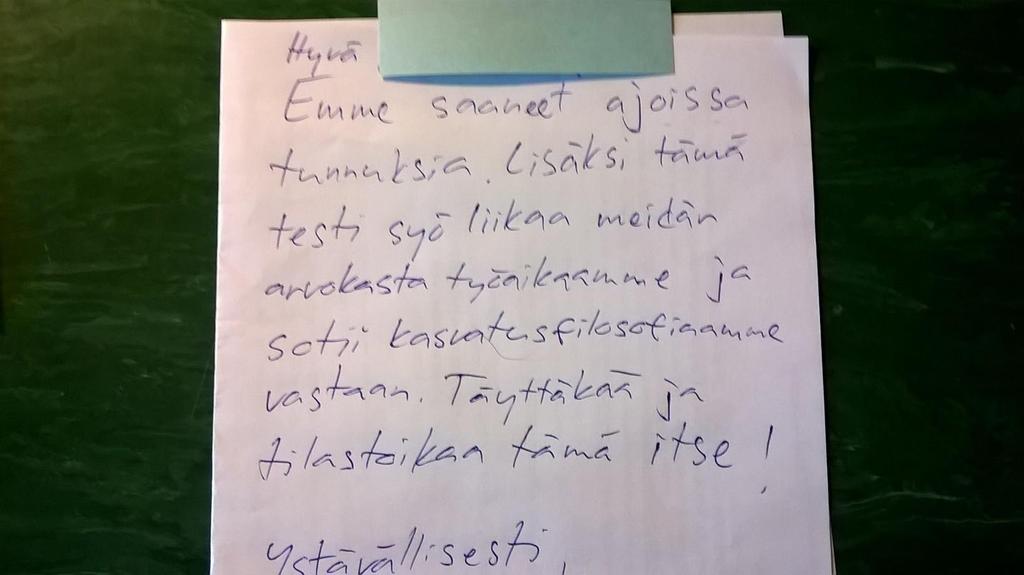 Hyvä
Emme saaneet ajoissa
tunnuksia. Lisäksi tämä
testi syö liikaa meidän
arvokasta työaikaamme ja
sotii kasvatusfilosofiaamme
vastaan. Täyttäkää ja
tilastoikaa tämä itse!
Ystävällisesti,